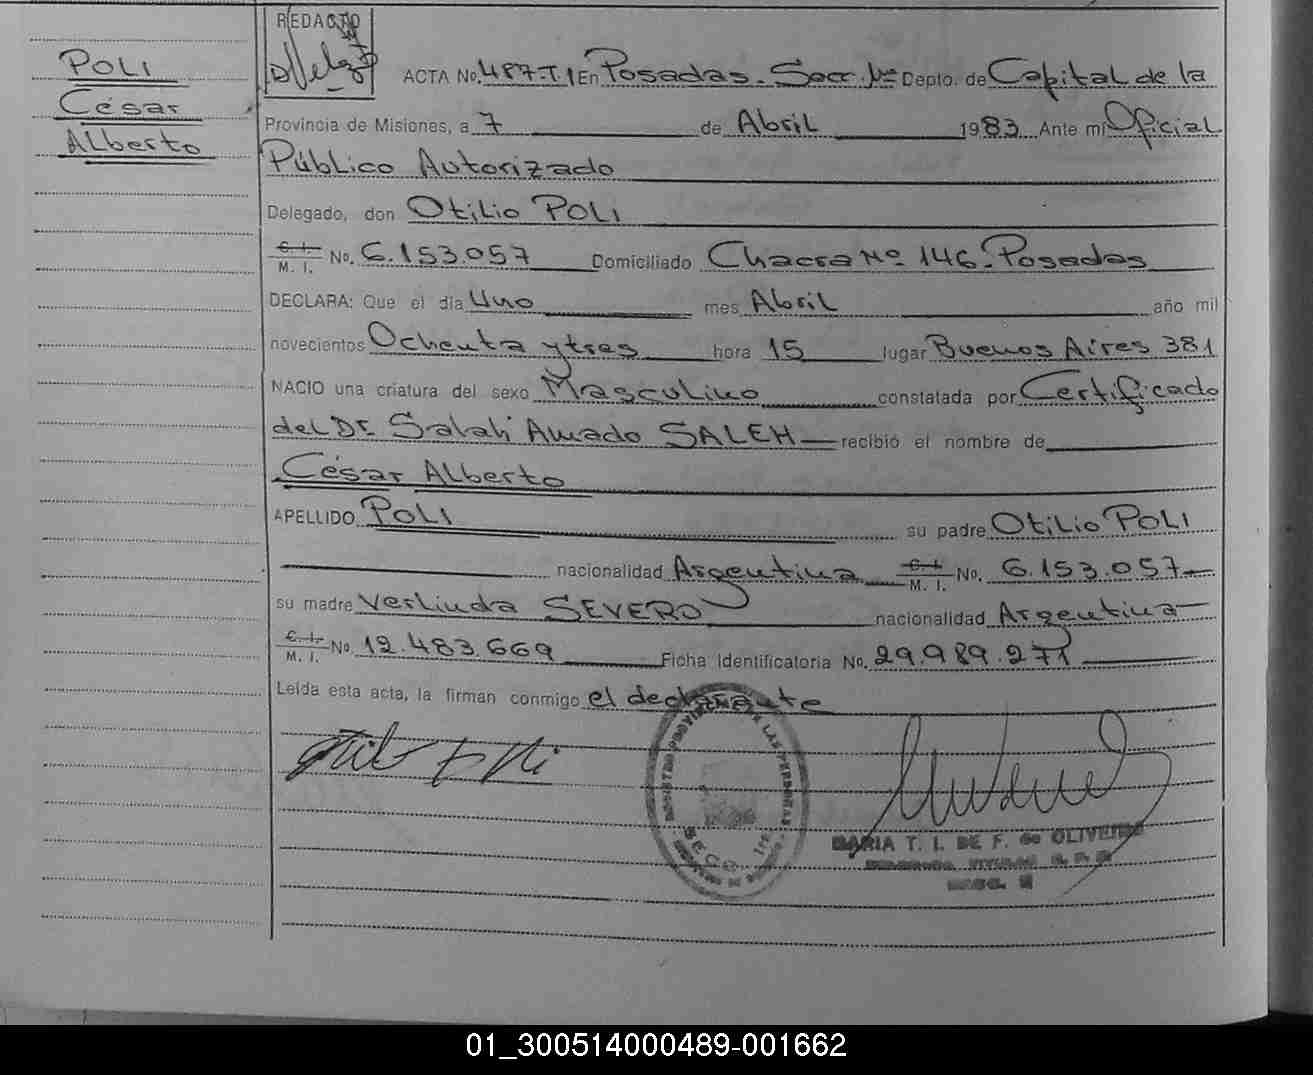 POLI
César
Alberto
REDACTO
ACTA No. 487-T.I En Posadas-Secc. 1ra Depto. de Capital de la
Provincia de Misiones, a 7 de Abril 1983 Ante mí Oficial
Público Autorizado
Delegado, don Otilio POLI
C. I.
M. I. No. 6.153.057 Domiciliado Chacra Nº 146-Posadas
DECLARA: Que el día Uno mes Abril año mil
novecientos Ochenta y tres hora 15 lugar Buenos Aires 381
NACIO una criatura del sexo Masculino constatada por Certificado
del Dr. Salah Amado SALEH recibió el nombre de
César Alberto
APELLIDO POLI su padre Otilio POLI
nacionalidad Argentina C. I.
M. I. No. 6.153.057
su madre Verlinda SEVERO nacionalidad Argentina
C. I.
M. I. No. 12.483.669 Ficha Identificatoria No. 29.989.271
Leída esta acta, la firman conmigo el declarante
MARIA T. I. DE F. de OLIVEIRA
01_300514000489-001662